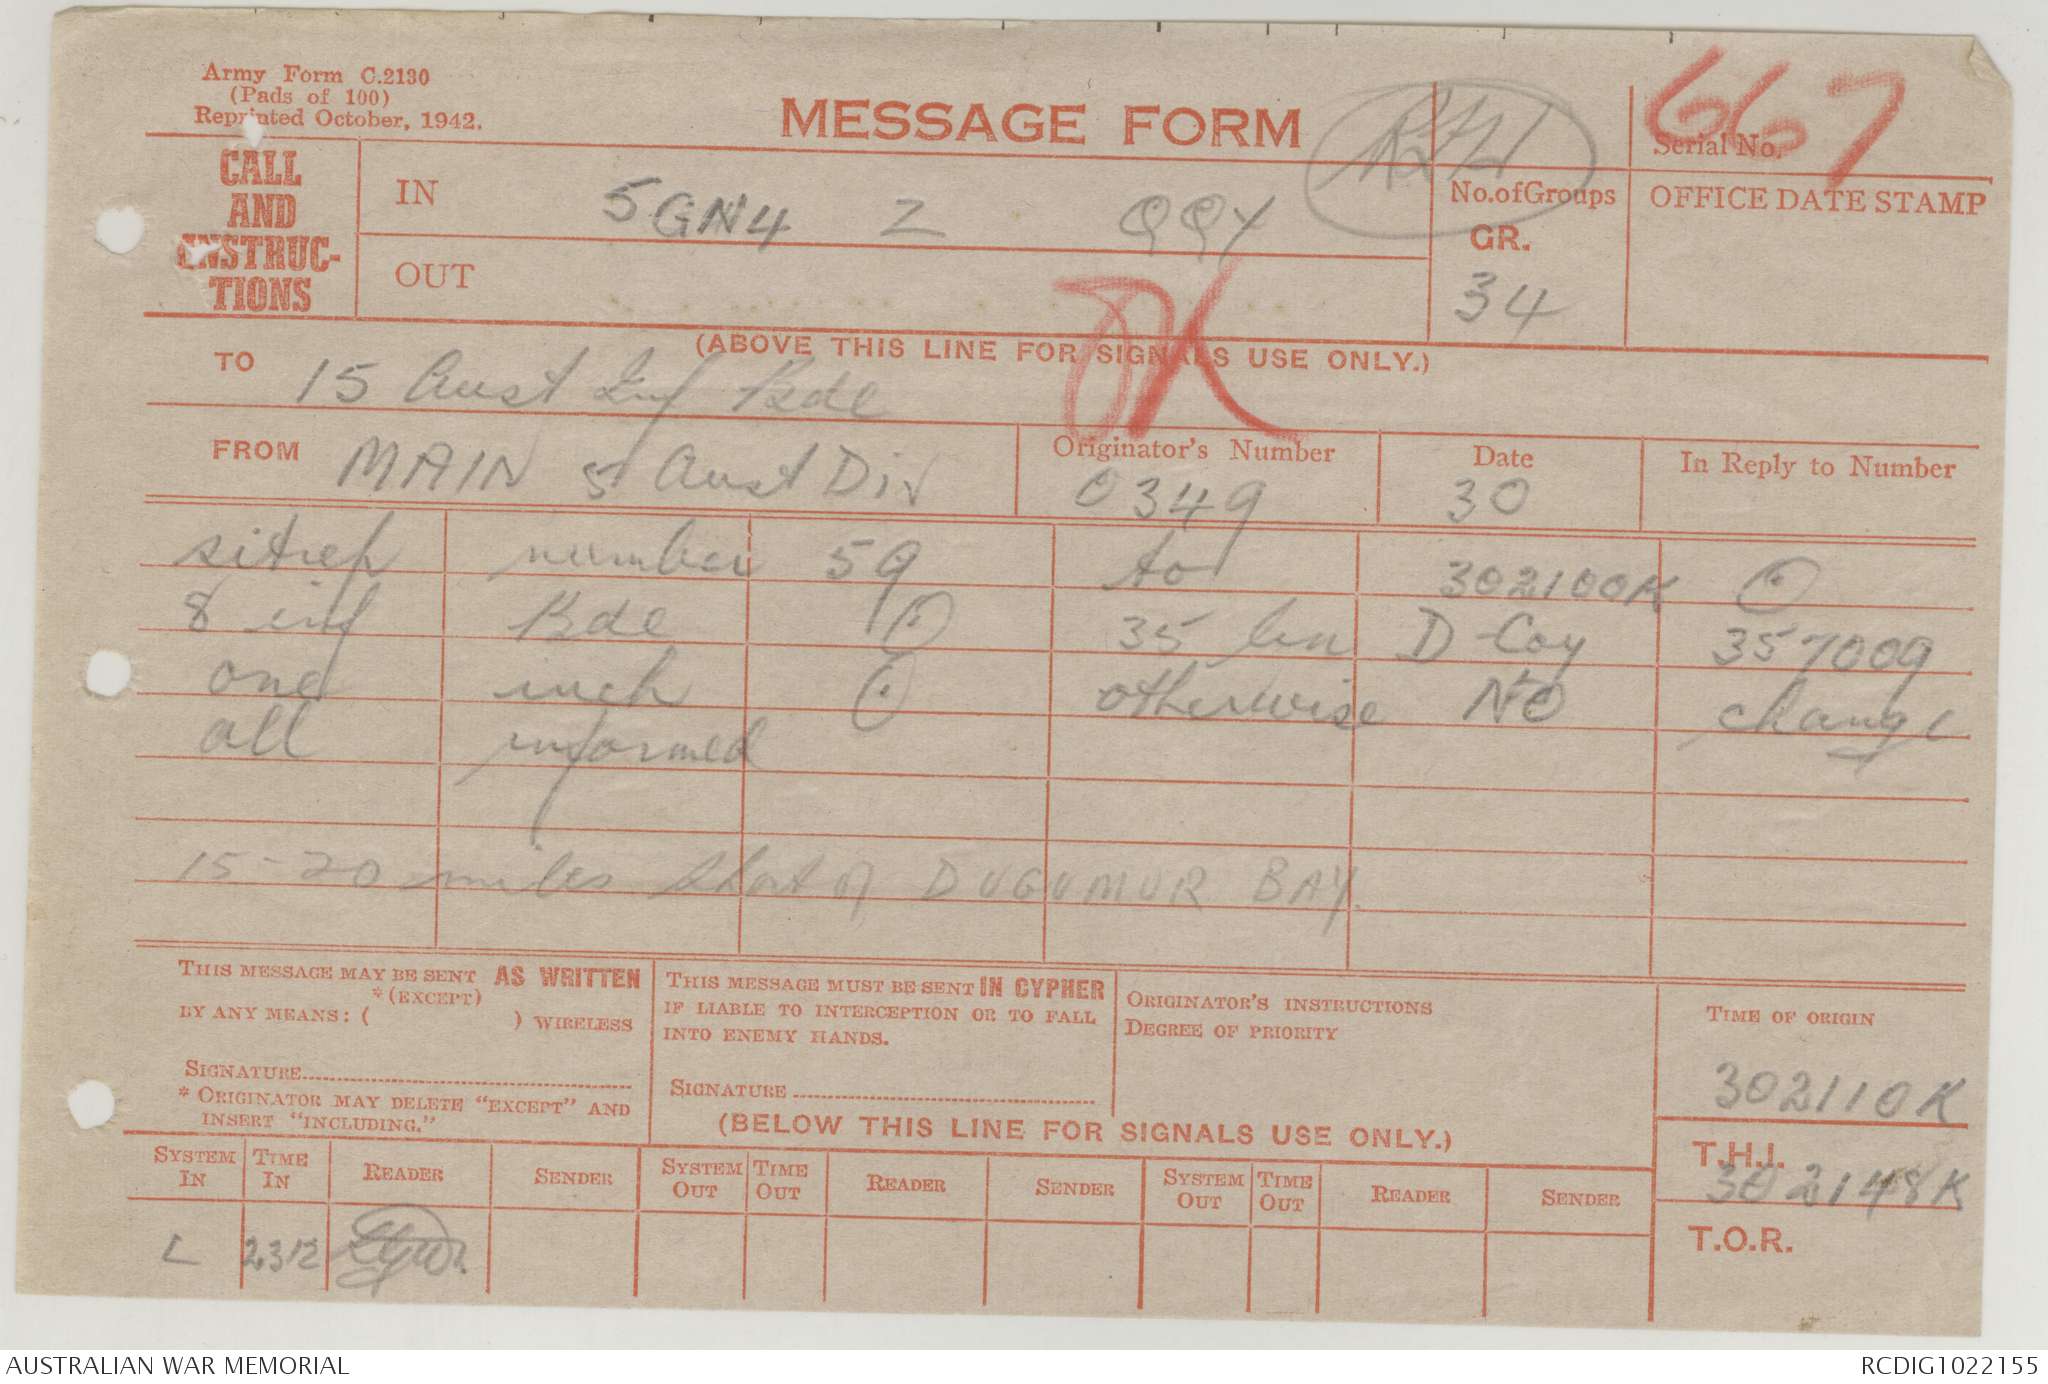 Army Form C.2130
(Pads of 100)
Reprinted October, 1942.
MESSAGE FORM
667
Serial No.
CALL AND INSTRUC-TIONS
IN 5GN4 Z QQY
OUT
No. of Groups
GR.
34
OFFICE DATE STAMP
OK
(ABOVE THIS LINE FOR SIGNALS USE ONLY.)
TO 15 Aust Inf Bde
FROM MAIN 5 Aust Div
Originator's Number
0349
Date
30
In Reply to Number
sitrep number 59 to 302100K (.)
8 inf Bde (.) 35 bn D Coy 357009
one inch (.) otherwise NO change
all informed
15-20 miles short of DUGUMUR BAY.
THIS MESSAGE MAY BE SENT AS WRITTEN
*(EXCEPT)
BY ANY MEANS: ( ) WIRELESS
SIGNATURE
* ORIGINATOR MAY DELETE "EXCEPT" AND
INSERT "INCLUDING."
THIS MESSAGE MUST BE SENT IN CYPHER
IF LIABLE TO INTERCEPTION OR TO FALL
INTO ENEMY HANDS.
SIGNATURE
ORIGINATOR'S INSTRUCTIONS
DEGREE OF PRIORITY
TIME OF ORIGIN
302110K
(BELOW THIS LINE FOR SIGNALS USE ONLY.)
T.H.I.
302148K
T.O.R.
SYSTEM IN TIME IN READER SENDER SYSTEM OUT TIME OUT READER SENDER SYSTEM OUT TIME OUT READER SENDER
L 2312
AUSTRALIAN WAR MEMORIAL
RCDIG1022155